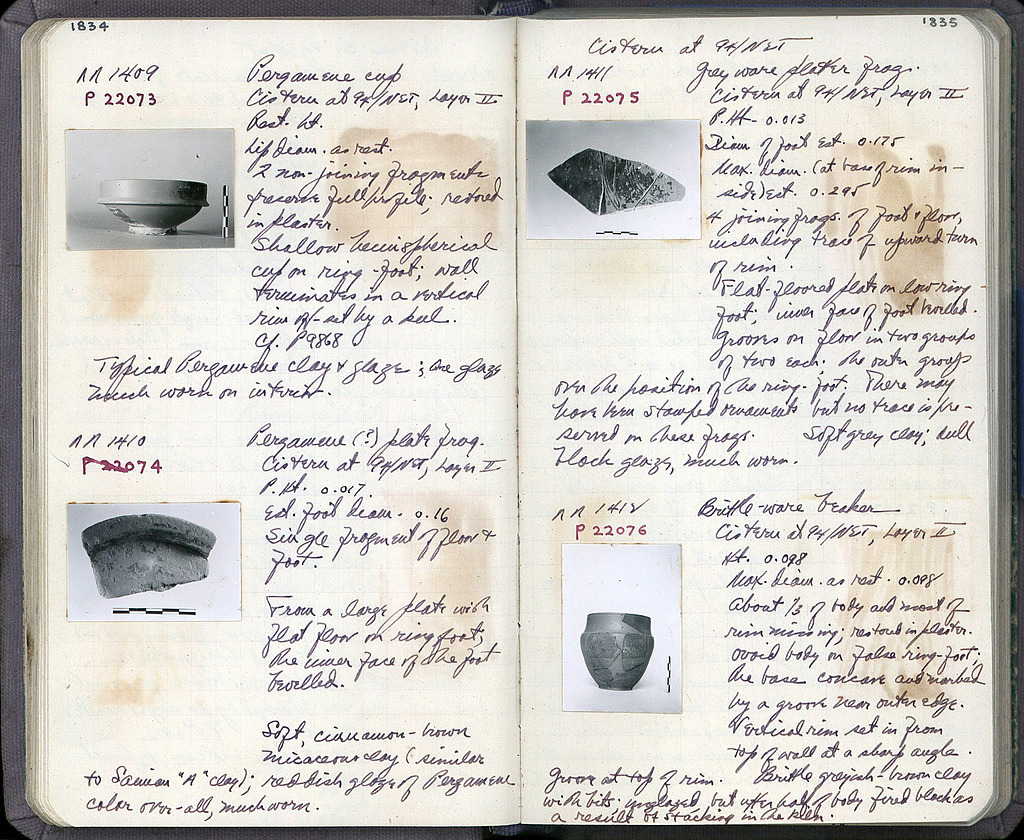 1834
ΛΛ 1409
P 22073
Pergamene cup
Cistern at 94/NET, Layer II
Rest. ht.
Lip diam. as rest.
2 non-joining fragments
preserve full profile; restored
in plaster.
Shallow hemispherical
cup on ring-foot; wall
terminates in a vertical
rim off-set by a keel.
Cf. P9868
Typical Pergamene clay & glaze; the glaze
much worn on interior.
ΛΛ 1410
P 22074
Pergamene (?) plate frag.
Cistern at 94/NET, Layer II
P. Ht. 0.017.
Est. foot diam. 0.16
Single fragment of floor &
foot.
From a large plate with
flat floor on ring foot;
the inner face of the foot
bevelled.
Soft, cinnamon-brown
micaceous clay (similar
to Samian "A" clay); reddish glaze of Pergamene
color over-all, much worn.
1835
Cistern at 94/NET
ΛΛ 1411
P 22075
Grey ware platter frag.
Cistern at 94/NET, Layer II
P. Ht. 0.013
Diam of foot Est. 0.175
Max. diam. (at base of rim in-
side) est. 0.295
4 joining frags. of foot & floor,
including trace of upward turn
of rim.
Flat-floored plate on low ring-
foot; inner face of foot bevelled.
Grooves on floor in two groups
of two each; the outer groups
over the position of the ring-foot. There may
have been stamped ornaments but no trace is pre-
served on these frags. Soft grey clay; dull
black glaze, much worn.
ΛΛ 1412
P 22076
Brittle-ware beaker
Cistern at 94/NET, Layer II
Ht. 0.098
Max. diam. as rest. 0.098
About 1/3 of body and most of
rim missing; restored in plaster.
Ovoid body on false ring-foot;
the base concave and marked
by a groove near outer edge.
Vertical rim set in from
top of wall at a sharp angle.
Groove at top of rim. Brittle greyish-brown clay
with bits; unglazed, but upper half of body fired black as
a result of stacking in the kiln.